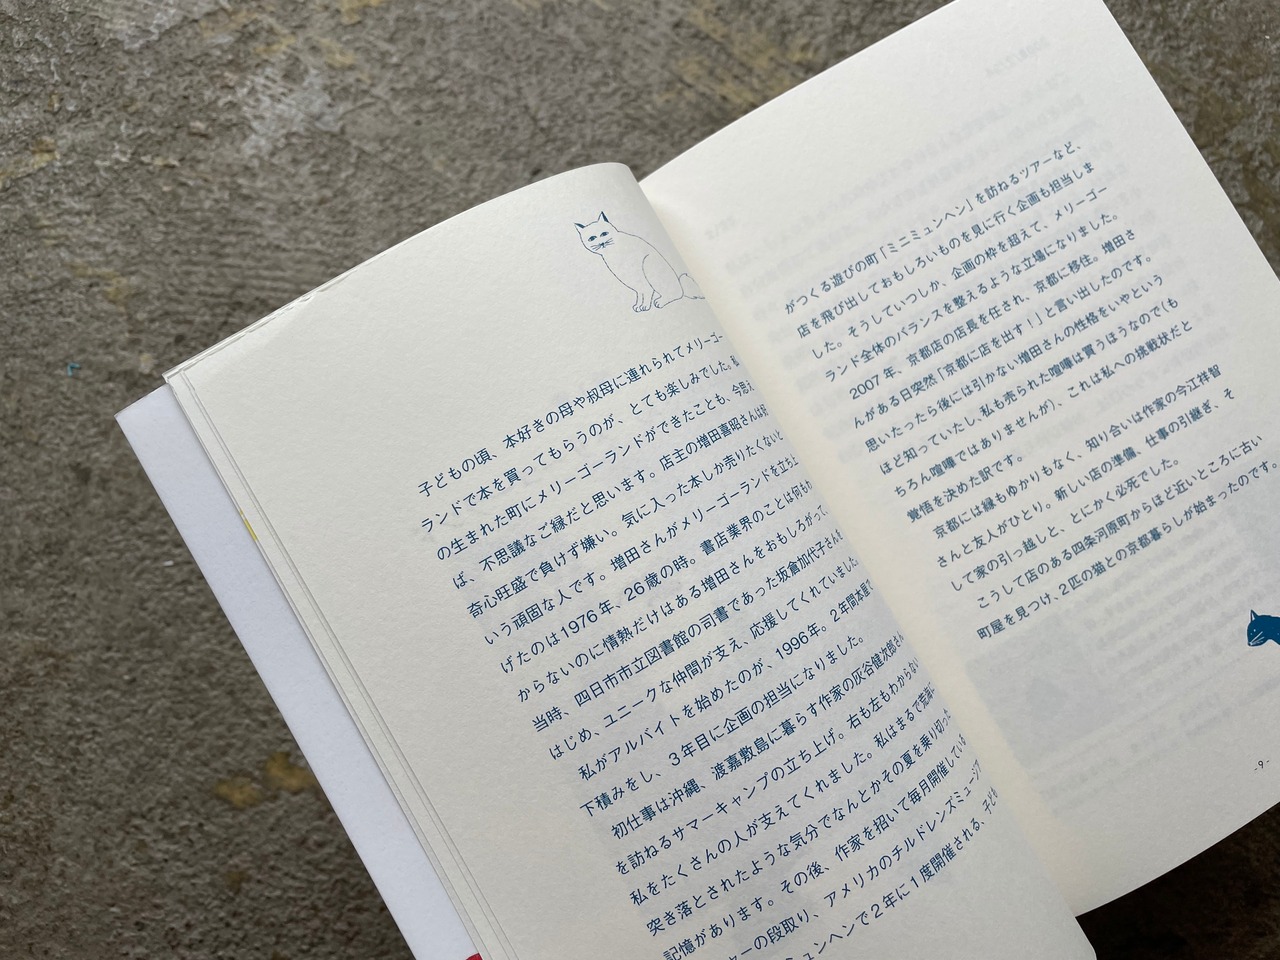 子どもの頃、本好きの母や叔母に連れられてメリーゴー
ランドで本を買ってもらうのが、とても楽しみでした。
の生まれた町にメリーゴーランドができたことも、今思え
ば、不思議なご縁だと思います。店主の増田喜昭さんは好
奇心旺盛で負けず嫌い。気に入った本しか売りたくないと
いう頑固な人です。増田さんがメリーゴーランドを立ち上
げたのは1976年、26歳の時。書店業界のことは何もわ
からないのに情熱だけはある増田さんをおもしろがって、
当時、四日市市立図書館の司書であった坂倉加代子さんを
はじめ、ユニークな仲間が支え、応援してくれていました。
私がアルバイトを始めたのが、1996年。2年間本屋で
下積みをし、3年目に企画の担当になりました。
初仕事は沖縄、渡嘉敷島に暮らす作家の灰谷健次郎さん
を訪ねるサマーキャンプの立ち上げ。右も左もわからない
私をたくさんの人が支えてくれました。私はまるで荒海に
突き落とされたような気分でなんとかその夏を乗り切った
記憶があります。その後、作家を招いて毎月開催している
ャーの段取り、アメリカのチルドレンズミュージア
ミュンヘンで2年に1度開催される、子ども
がつくる遊びの町「ミニミュンヘン」を訪ねるツアーなど、
店を飛び出しておもしろいものを見に行く企画も担当しま
した。そうしていつしか、企画の枠を超えて、メリーゴー
ランド全体のバランスを整えるような立場になりました。
2007年、京都店の店長を任され、京都に移住。増田さ
んがある日突然「京都に店を出す！」と言い出したのです。
思いたったら後には引かない増田さんの性格をいやという
ほど知っていたし、私も売られた喧嘩は買うほうなので（も
ちろん喧嘩ではありませんが）、これは私への挑戦状だと
覚悟を決めた訳です。
京都には縁もゆかりもなく、知り合いは作家の今江祥智
さんと友人がひとり。新しい店の準備、仕事の引継ぎ、そ
して家の引っ越しと、とにかく必死でした。
こうして店のある四条河原町からほど近いところに古い
町屋を見つけ、2匹の猫との京都暮らしが始まったのです。
-9-